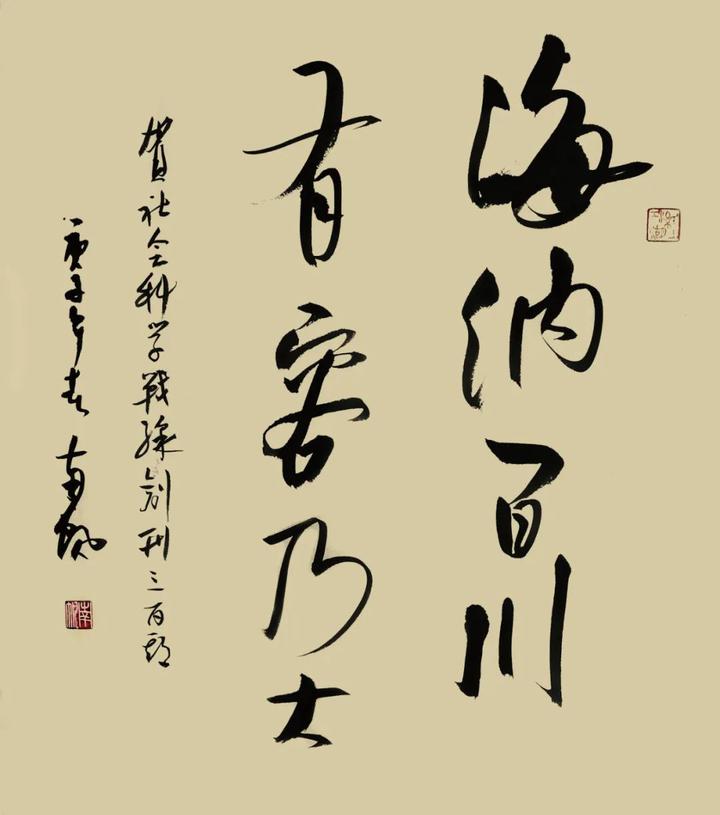 海纳百川
有容乃大
贺社会科学战线创刊三百期
庚子年春 南帆
南帆